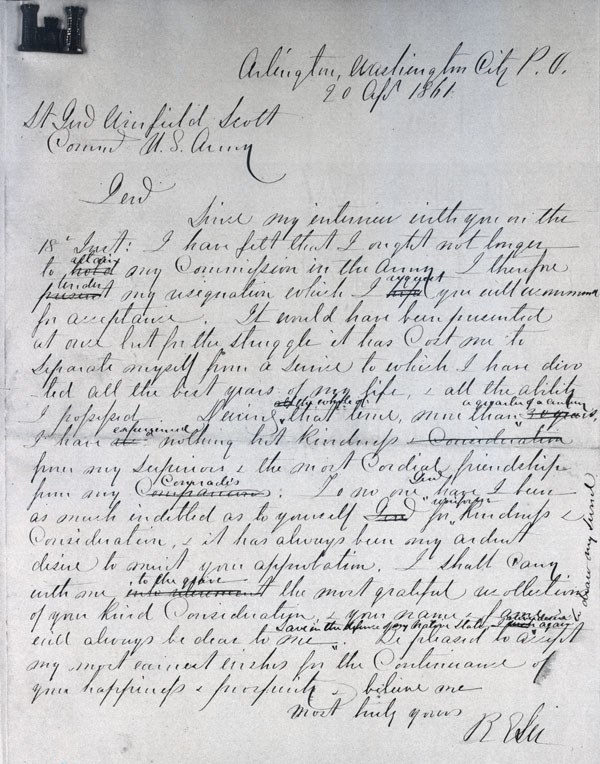 Arlington, Washington City P.O.
20 Apr 1861
Lt Genl Winfield Scott
Commd U.S. Army
Genl
Since my interview with you on the
18th Inst: I have felt that I ought not longer
retain
to hold my Commission in the Army. I therefore
tender request
present my resignation which I you will recommend
for acceptance. It would have been presented
at once but for the struggle it has Cost me to
separate myself from a service to which I have devo
ted all the best years of my life, & all the ability
I possessed. During
the whole of a quarter of a century
that time, more than 30 years,
experienced
I have nothing but kindness & Consideration
from my superiors & the most Cordial friendship
Comrades Genl
from my Companions: To no one have I been
uniform
as much indebted as to yourself Genl for kindness &
Consideration, & it has always been my ardent
desire to merit your approbation. I shall carry
to the grave
with me into retirement the most grateful recollections
of your kind Consideration, & your name & fame
will always be dear to me
Save in the defence of my Native State
I never desire again to draw my sword
Be pleased to accept
my most earnest wishes for the Continuance of
your happiness & prosperity & believe me
most truly yours
R E Lee